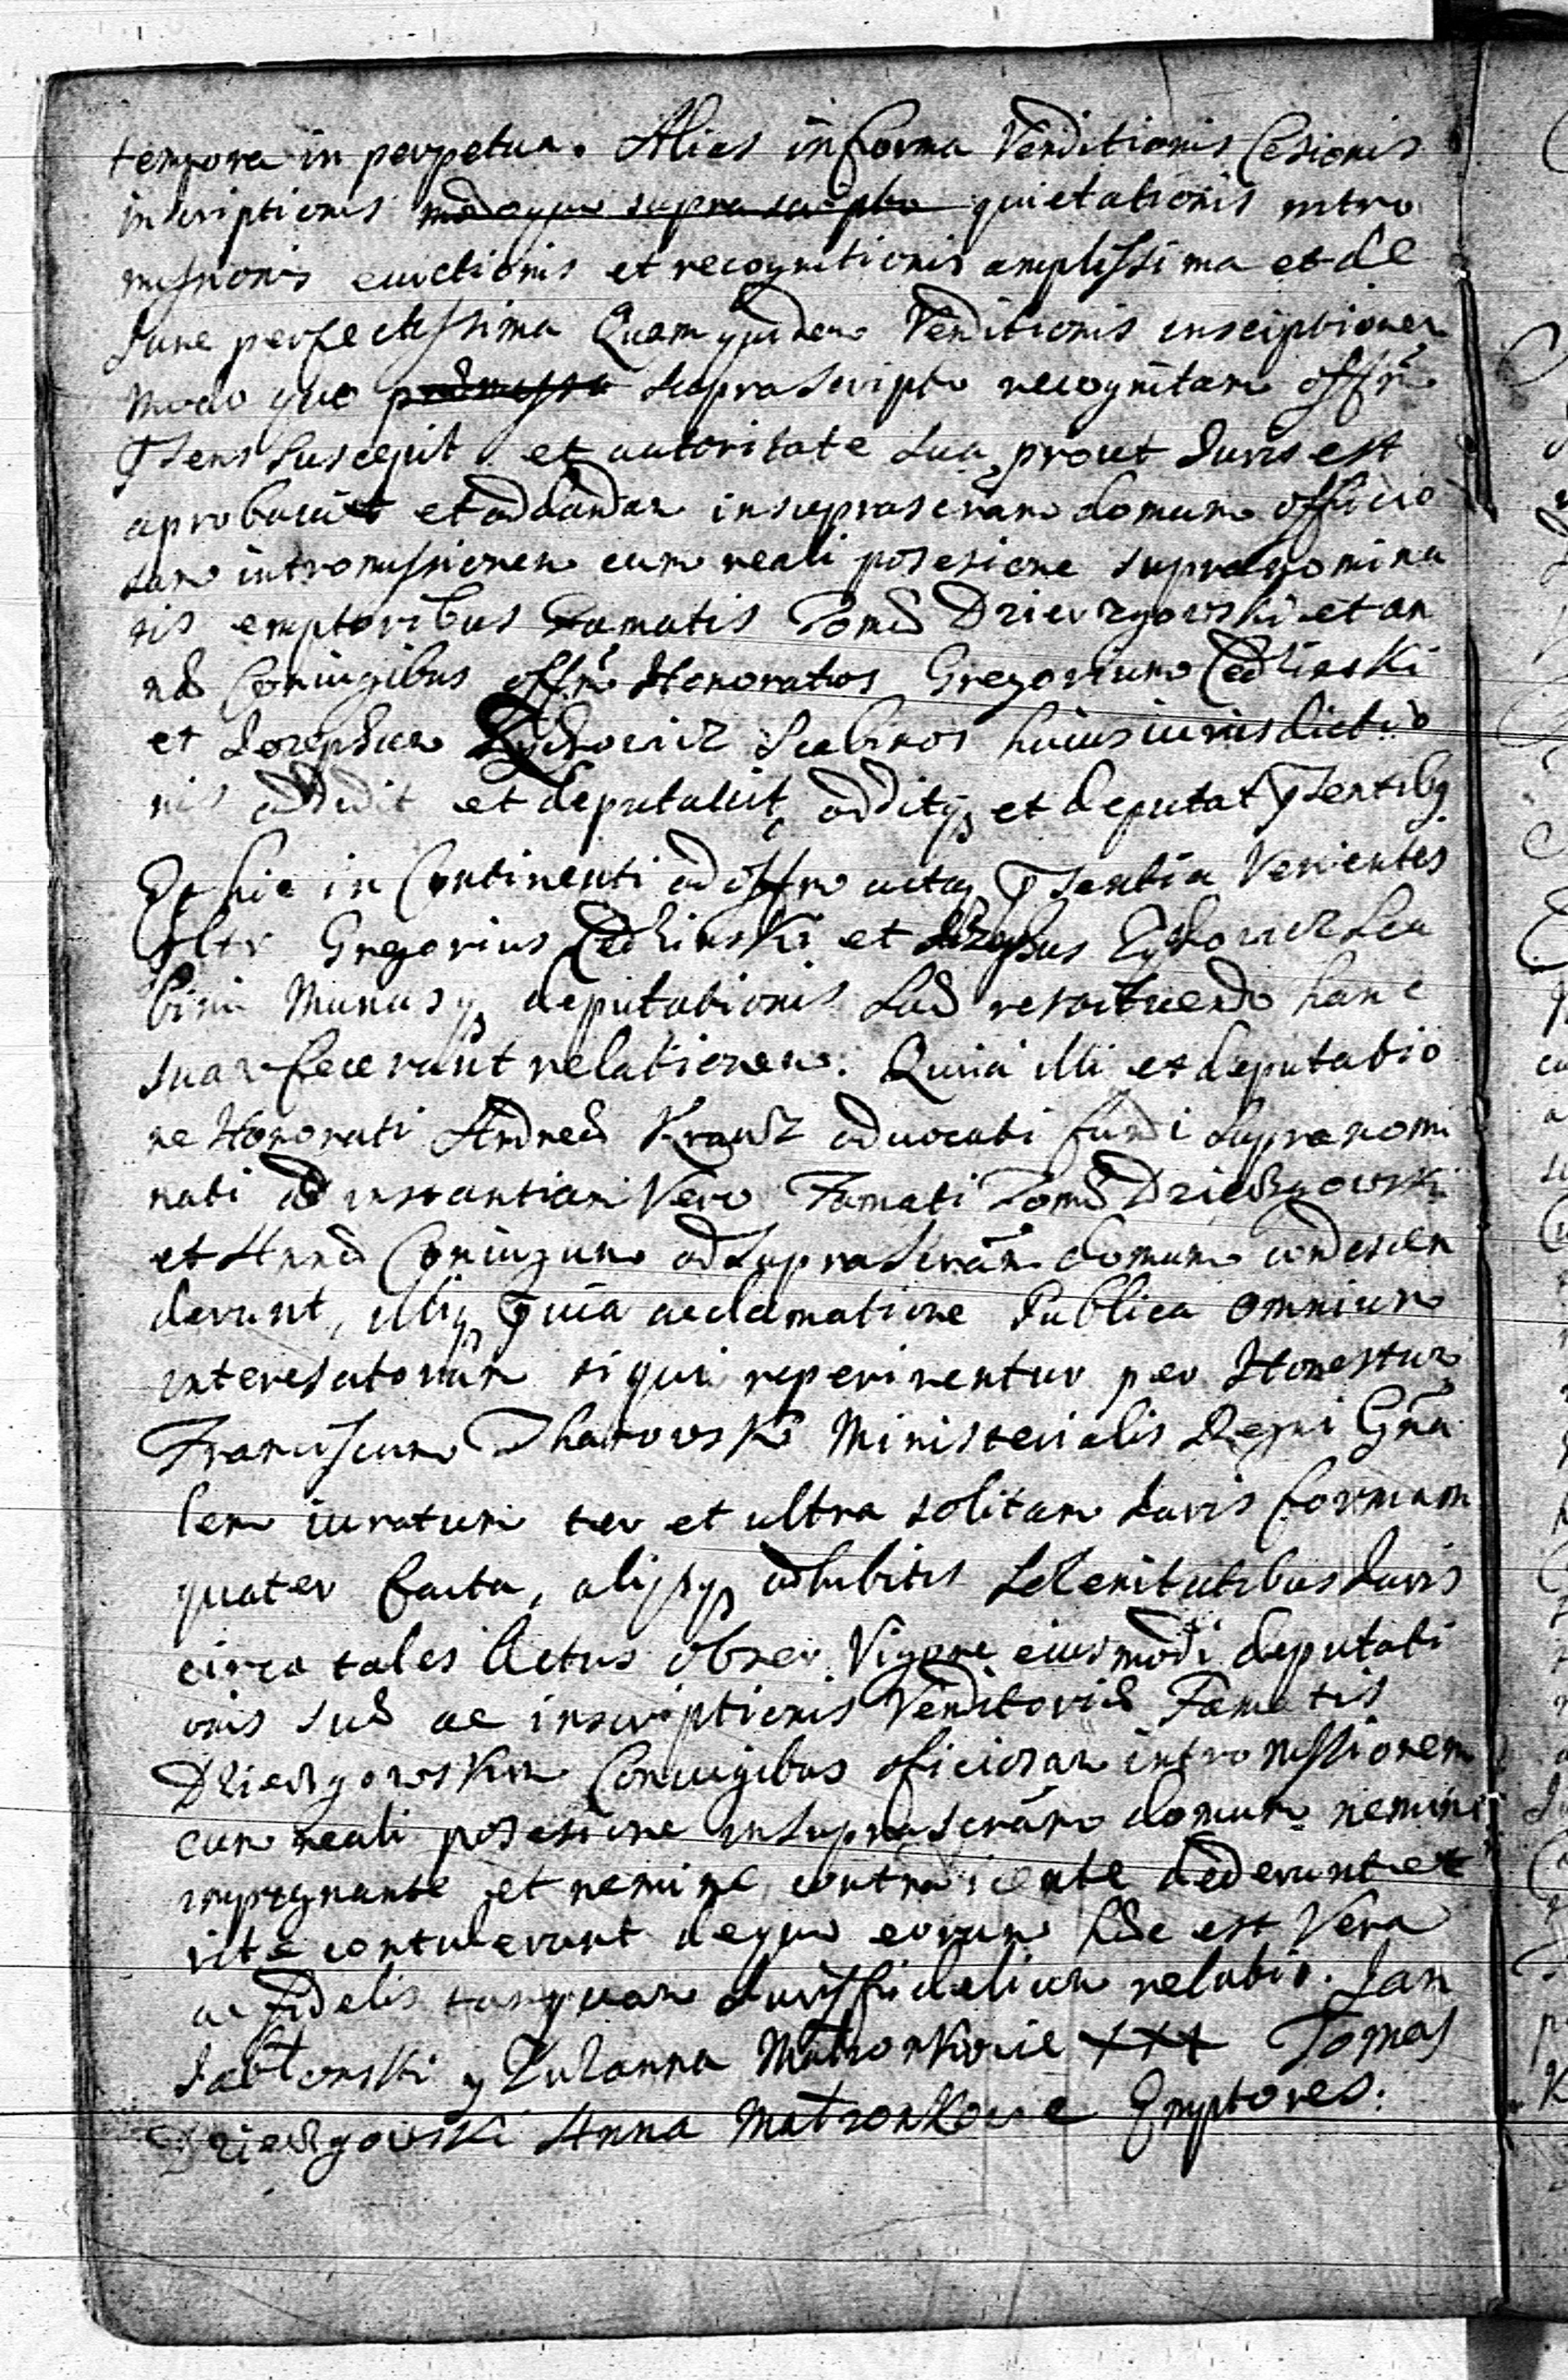 tempora in perpetua. Alias in forma Venditionis Cesionis
inscriptionis modoque supra scripto quietationis intro
missionis evictionis et recognitionis amplissima et de
Iure perfectissima Quam quidem Venditionis inscriptionem
modo quo praemisso suprascripto recognitam offm
suscepit et autoritate sua prout Iuris est
aprobavit et ad dandam in suprascram domum officio
sam intromissionem cum reali posesione supra nomina
tis emptoribus Famatis Tomae Dzierzgowski et An
nae Coniugibus offm Honoratos Gregorium Cedlinski
et Iozephum Scabinos huius iurisdictio
nis addidit et deputavit, additq et deputat
Et hic in Continenti ad offm actaq Venientes
Gregorius Cedlinski et Iozephus Sca
bini Munusq deputationis suae restituendo hanc
suam fecerunt relationem. Quia illi ex deputatio
ne Honorati Andreae Krausz advocati fundi supranomi
nati ad instantiam Vero Famati Tomae Dzierzgowski
et Annae Coniugum ad suprascram domum condescen
derunt, ibiq aclamatione Publica omnium
interesatorum si qui reperirentur per Honestum
Franciscum Ministerialis Regni Gna
lem iuratum ter et ultra solitam Iuris formam
quater facta, alijsq adhibitis Solenitatibus Iuris
circa tales Actus obser. Vigore eiusmodi deputati
onis suae ac inscriptionis Venditoriae Famatis
Dzierzgowskim Coniugibus oficiosam intromissionem
cum reali posesione in suprascram domum nemine
impugnante et nemine contradicente dederunt et
rite contulerunt deque eorum haec est Vera
ac fidelis tanquam Iurisfidelium relatio. Jan
Jabłonski y Zuzanna Małzonkowie +++ Tomas
Dzierzgowski Anna Małzonkowie Emptores.